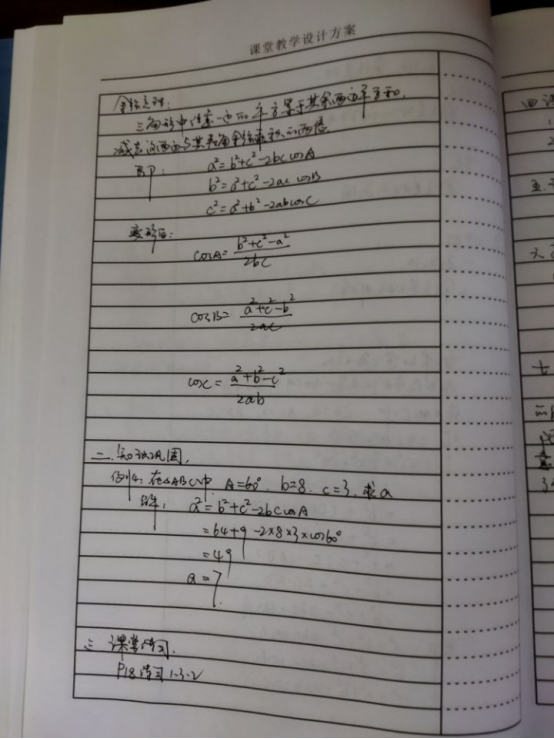 课堂教学设计方案
余弦定理:
三角形中任意一边的平方等于其余两边平方和,
减去这两边与其夹角余弦乘积的两倍
即: a²=b²+c²-2bc cosA
b²=a²+c²-2ac cosB
c²=a²+b²-2abcosC
变形后:
cosA=(b²+c²-a²)/2bc
cosB=(a²+c²-b²)/2ac
cosC=(a²+b²-c²)/2ab
二、知识巩固,
例4: 在△ABC中, A=60°, b=8, c=3, 求a
解: a²=b²+c²-2bccosA
=64+9-2×8×3×cos60°
=49
a=7
三 课堂练习,
P18练习
四
1
2
五
六
七